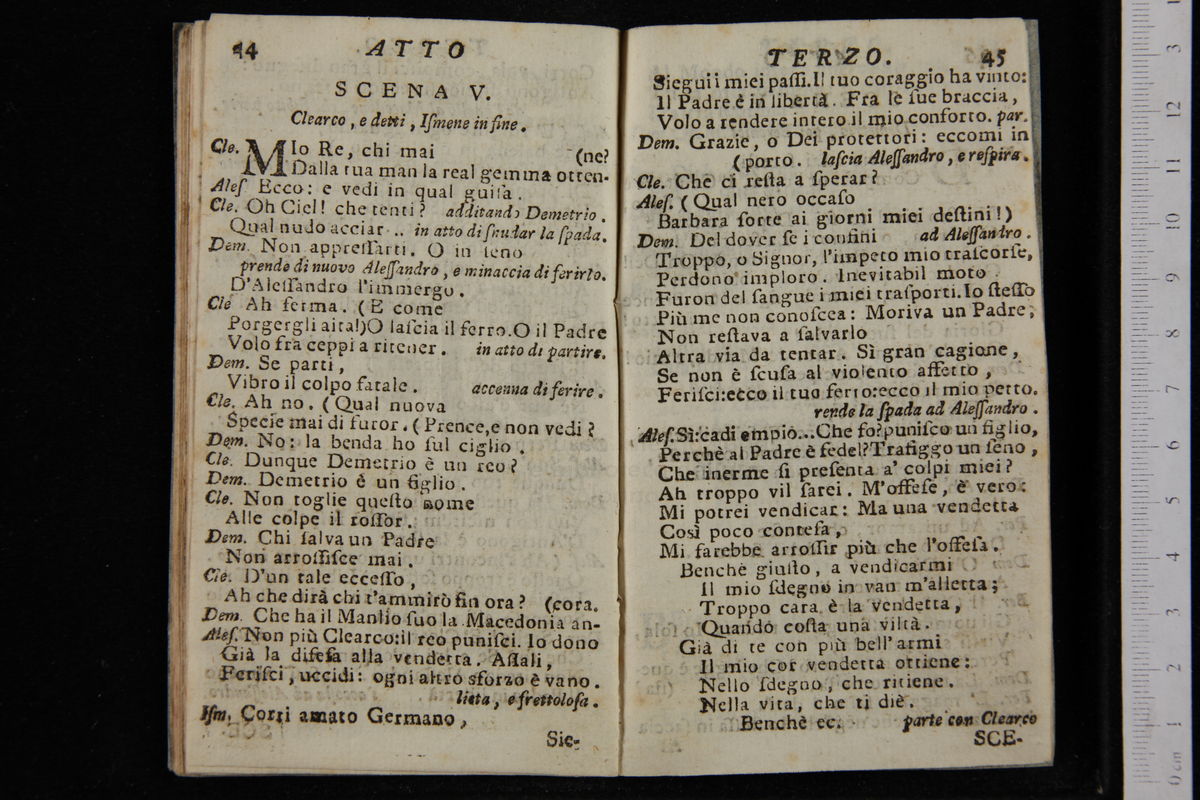 44 ATTO
SCENA V.
Clearco, e detti, Iſmene in fine.
Cle. MIo Re, chi mai (ne?
Dalla tua man la real gemma otten-
Aleſ Ecco: e vedi in qual guiſa.
Cle. Oh Ciel! che tenti? additando Demetrio.
Qual nudo acciar... in atto di ſnudar la ſpada.
Dem. Non appreſſarti. O in ſeno
prende di nuovo Aleſſandro, e minaccia di ferirlo.
D'Aleſſandro l'immergo.
Cle Ah ferma. (E come
Porgergli aita!) O laſcia il ferro. O il Padre
Volo fra ceppi a ritener. in atto di partire.
Dem. Se parti,
Vibro il colpo fatale. accenna di ferire.
Cle. Ah no. (Qual nuova
Specie mai di furor. (Prence, e non vedi?
Dem. No: la benda ho ſul ciglio.
Cle. Dunque Demetrio è un reo?
Dem. Demetrio è un figlio.
Cle. Non toglie queſto nome
Alle colpe il roſſor.
Dem. Chi ſalva un Padre
Non arroſſiſce mai.
Cle. D'un tale ecceſſo,
Ah che dirà chi t'ammirò fin ora? (cora.
Dem. Che ha il Manlio ſuo la Macedonia an-
Aleſ. Non più Clearco: il reo puniſci. Io dono
Già la difeſa alla vendetta. Aſſali,
Feriſci, uccidi: ogni altro sforzo è vano.
lieta, e frettoloſa.
Iſm. Corri amato Germano,
Sie-
TERZO. 45
Siegui i miei paſſi. Il tuo coraggio ha vinto:
Il Padre è in libertà. Fra le ſue braccia,
Volo a rendere intero il mio conforto. par.
Dem. Grazie, o Dei protettori: eccomi in
(porto. laſcia Aleſſandro, e reſpira.
Cle. Che ci reſta a ſperar?
Aleſ. (Qual nero occaſo
Barbara ſorte ai giorni miei deſtini!)
Dem. Del dover ſe i confini ad Aleſſandro.
Troppo, o Signor, l'impeto mio traſcorſe,
Perdono imploro. Inevitabil moto
Furon del ſangue i miei traſporti. Io ſteſſo
Più me non conoſcea: Moriva un Padre;
Non reſtava a ſalvarlo
Altra via da tentar. Sì gran cagione,
Se non è ſcuſa al violento affetto,
Feriſci: ecco il tuo ferro: ecco il mio petto.
rende la ſpada ad Aleſſandro.
Aleſ. Sì: cadi empio... Che fo? puniſco un figlio,
Perchè al Padre è fedel? Trafiggo un ſeno,
Che inerme ſi preſenta a' colpi miei?
Ah troppo vil ſarei. M'offeſe, è vero:
Mi potrei vendicar: Ma una vendetta
Così poco conteſa,
Mi farebbe arroſſir più che l'offeſa.
Benchè giuſto, a vendicarmi
Il mio ſdegno in van m'alletta;
Troppo cara è la vendetta,
Quando coſta una viltà.
Già di te con più bell'armi
Il mio cor vendetta ottiene:
Nello ſdegno, che ritiene.
Nella vita, che ti diè.
Benchè ec. parte con Clearco
SCE-
0 cm 1 2 3 4 5 6 7 8 9 10 11 12 3